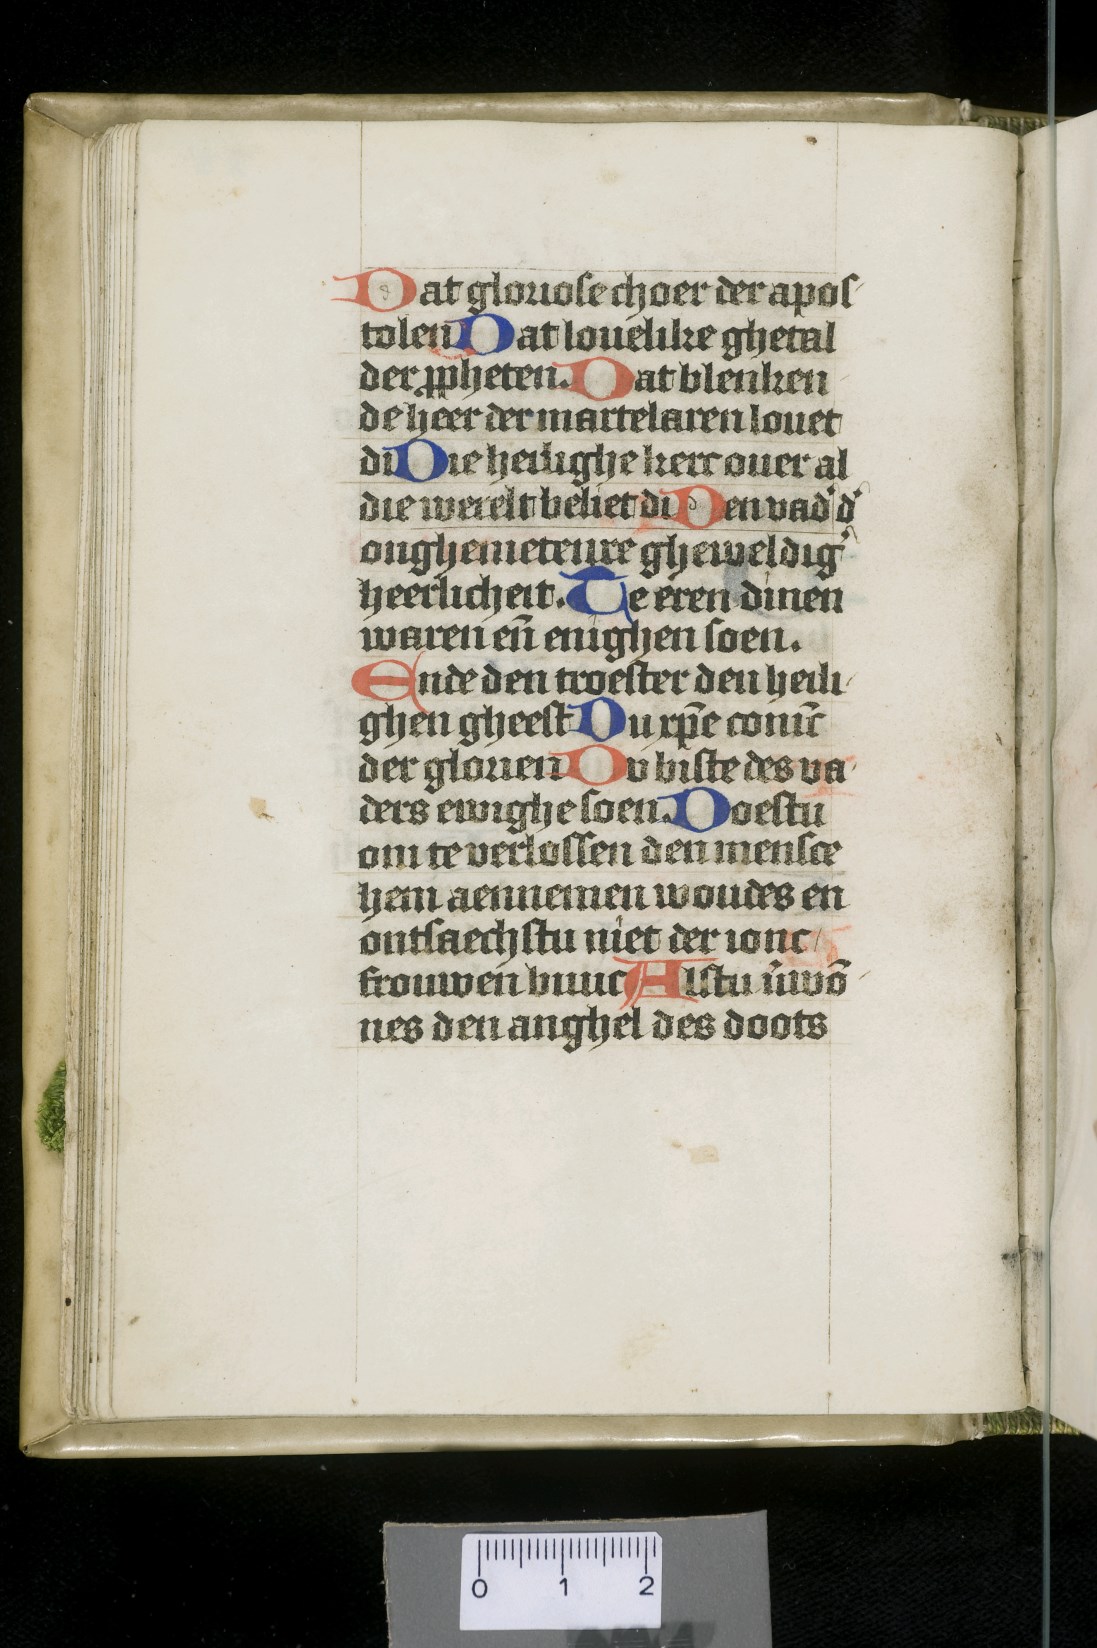 Dat gloriose choer der apos
tolen Dat louelike ghetal
der ꝓpheten. Dat blenken
de heer der martelaren louet
di Die heilighe kerc ouer al
die werelt beliet di Den vad' d'
onghemetenre gheweldig'
heerlicheit. Te eren dinen
waren en̄ enighen soen.
Ende den troester den heili
ghen gheest Du xp̄e coninc
der glorien Du biste des va
ders ewighe soen. Doestu
om te verlossen den mensce
hem aennemen woudes en
ontsaechstu niet der ionc
frouwen buuc Alstu v̄wō
nes den anghel des doots
0 1 2